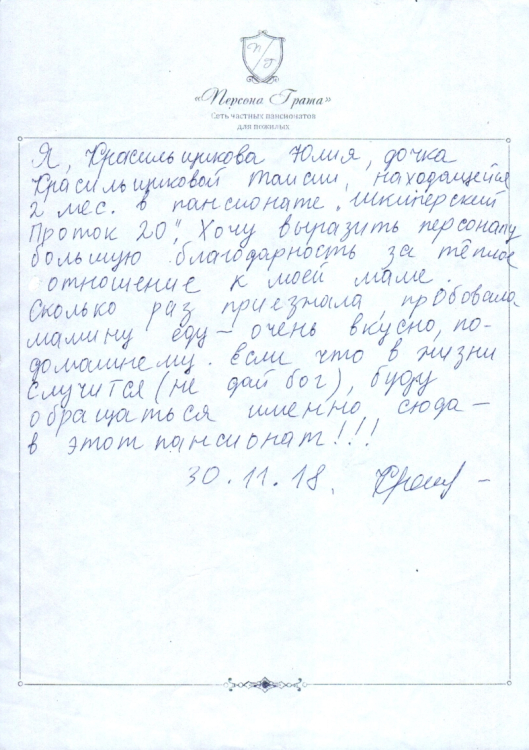 П/Г
«Персона Грата»
Сеть частных пансионатов
для пожилых
Я, Красильщикова Юлия, дочка
Красильщиковой Таисии, находящейся
2 мес. в пансионате „Шкиперский
Проток 20", Хочу выразить персоналу
большую благодарность за тёплое
отношение к моей маме.
Сколько раз приезжала, пробовала
мамину еду – очень вкусно, по-
домашнему. Если что в жизни
случится (не дай бог), буду
обращаться именно сюда –
в этот пансионат!!!
30.11.18.